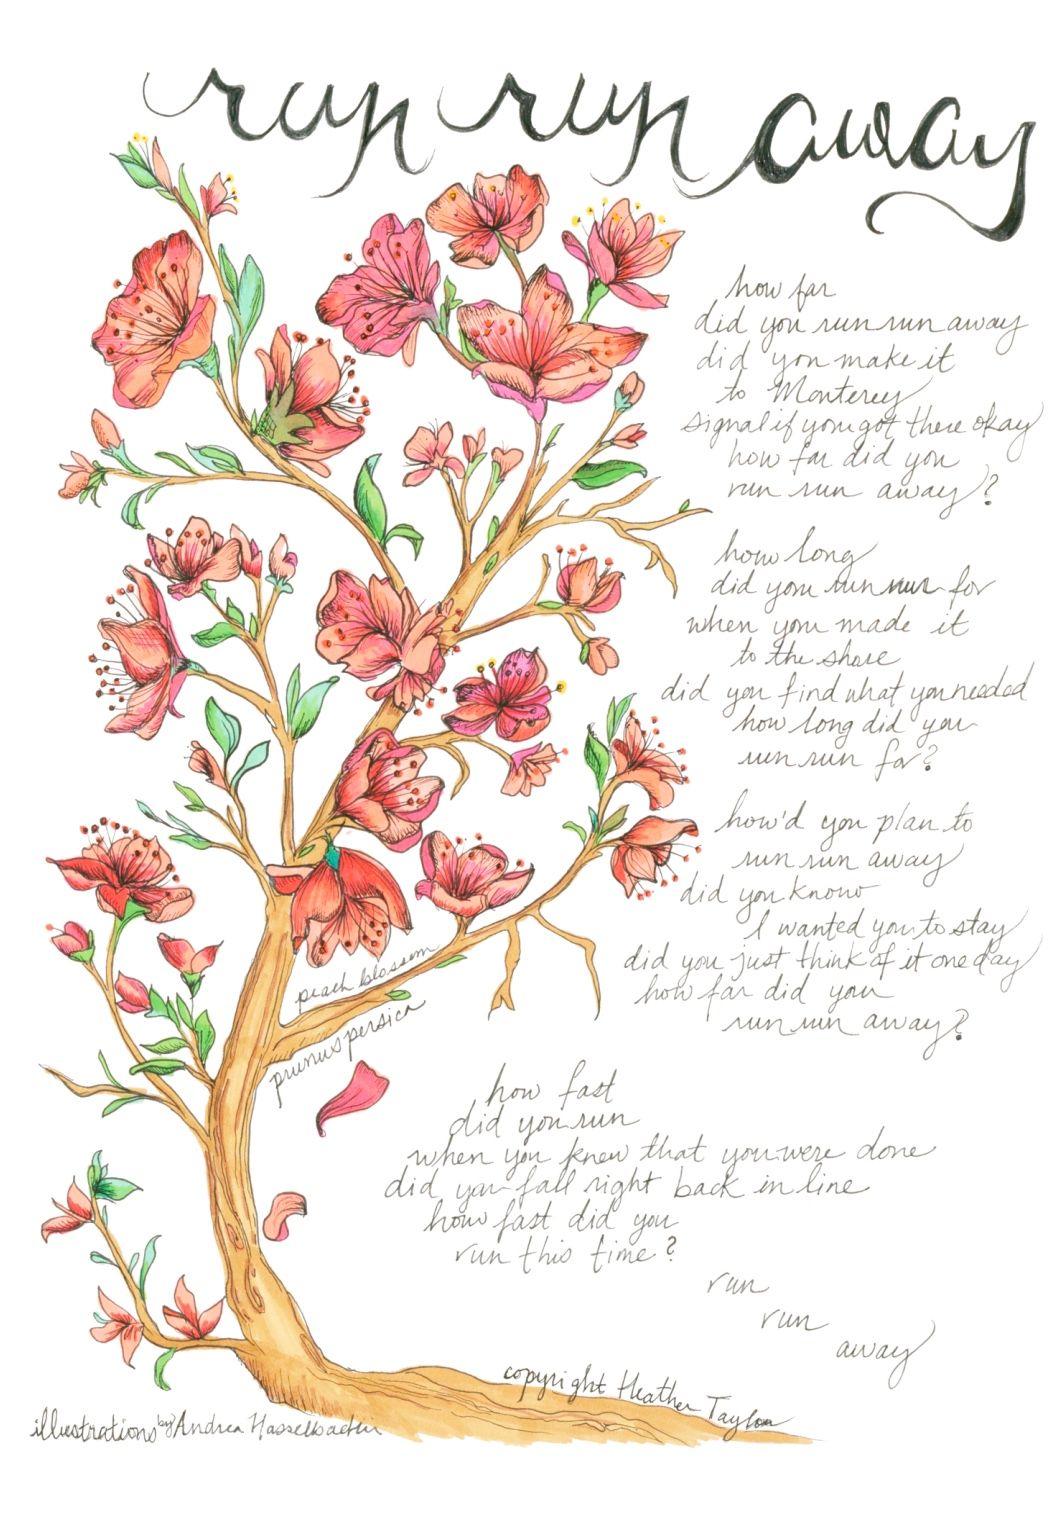 run run away
how far
did you run run away
did you make it
to Monterey
signal if you got there okay
how far did you
run run away?
how long
did you run run for
when you made it
to the shore
did you find what you needed
how long did you
run run for?
how'd you plan to
run run away
did you know
I wanted you to stay
did you just think of it one day
how far did you
run run away?
peach blossom
prunus persica
how fast
did you run
when you knew that you were done
did you fall right back in line
how fast did you
run this time?
run
run
away
copyright Heather Taylor
illustrations by Andrea Hasselbacher